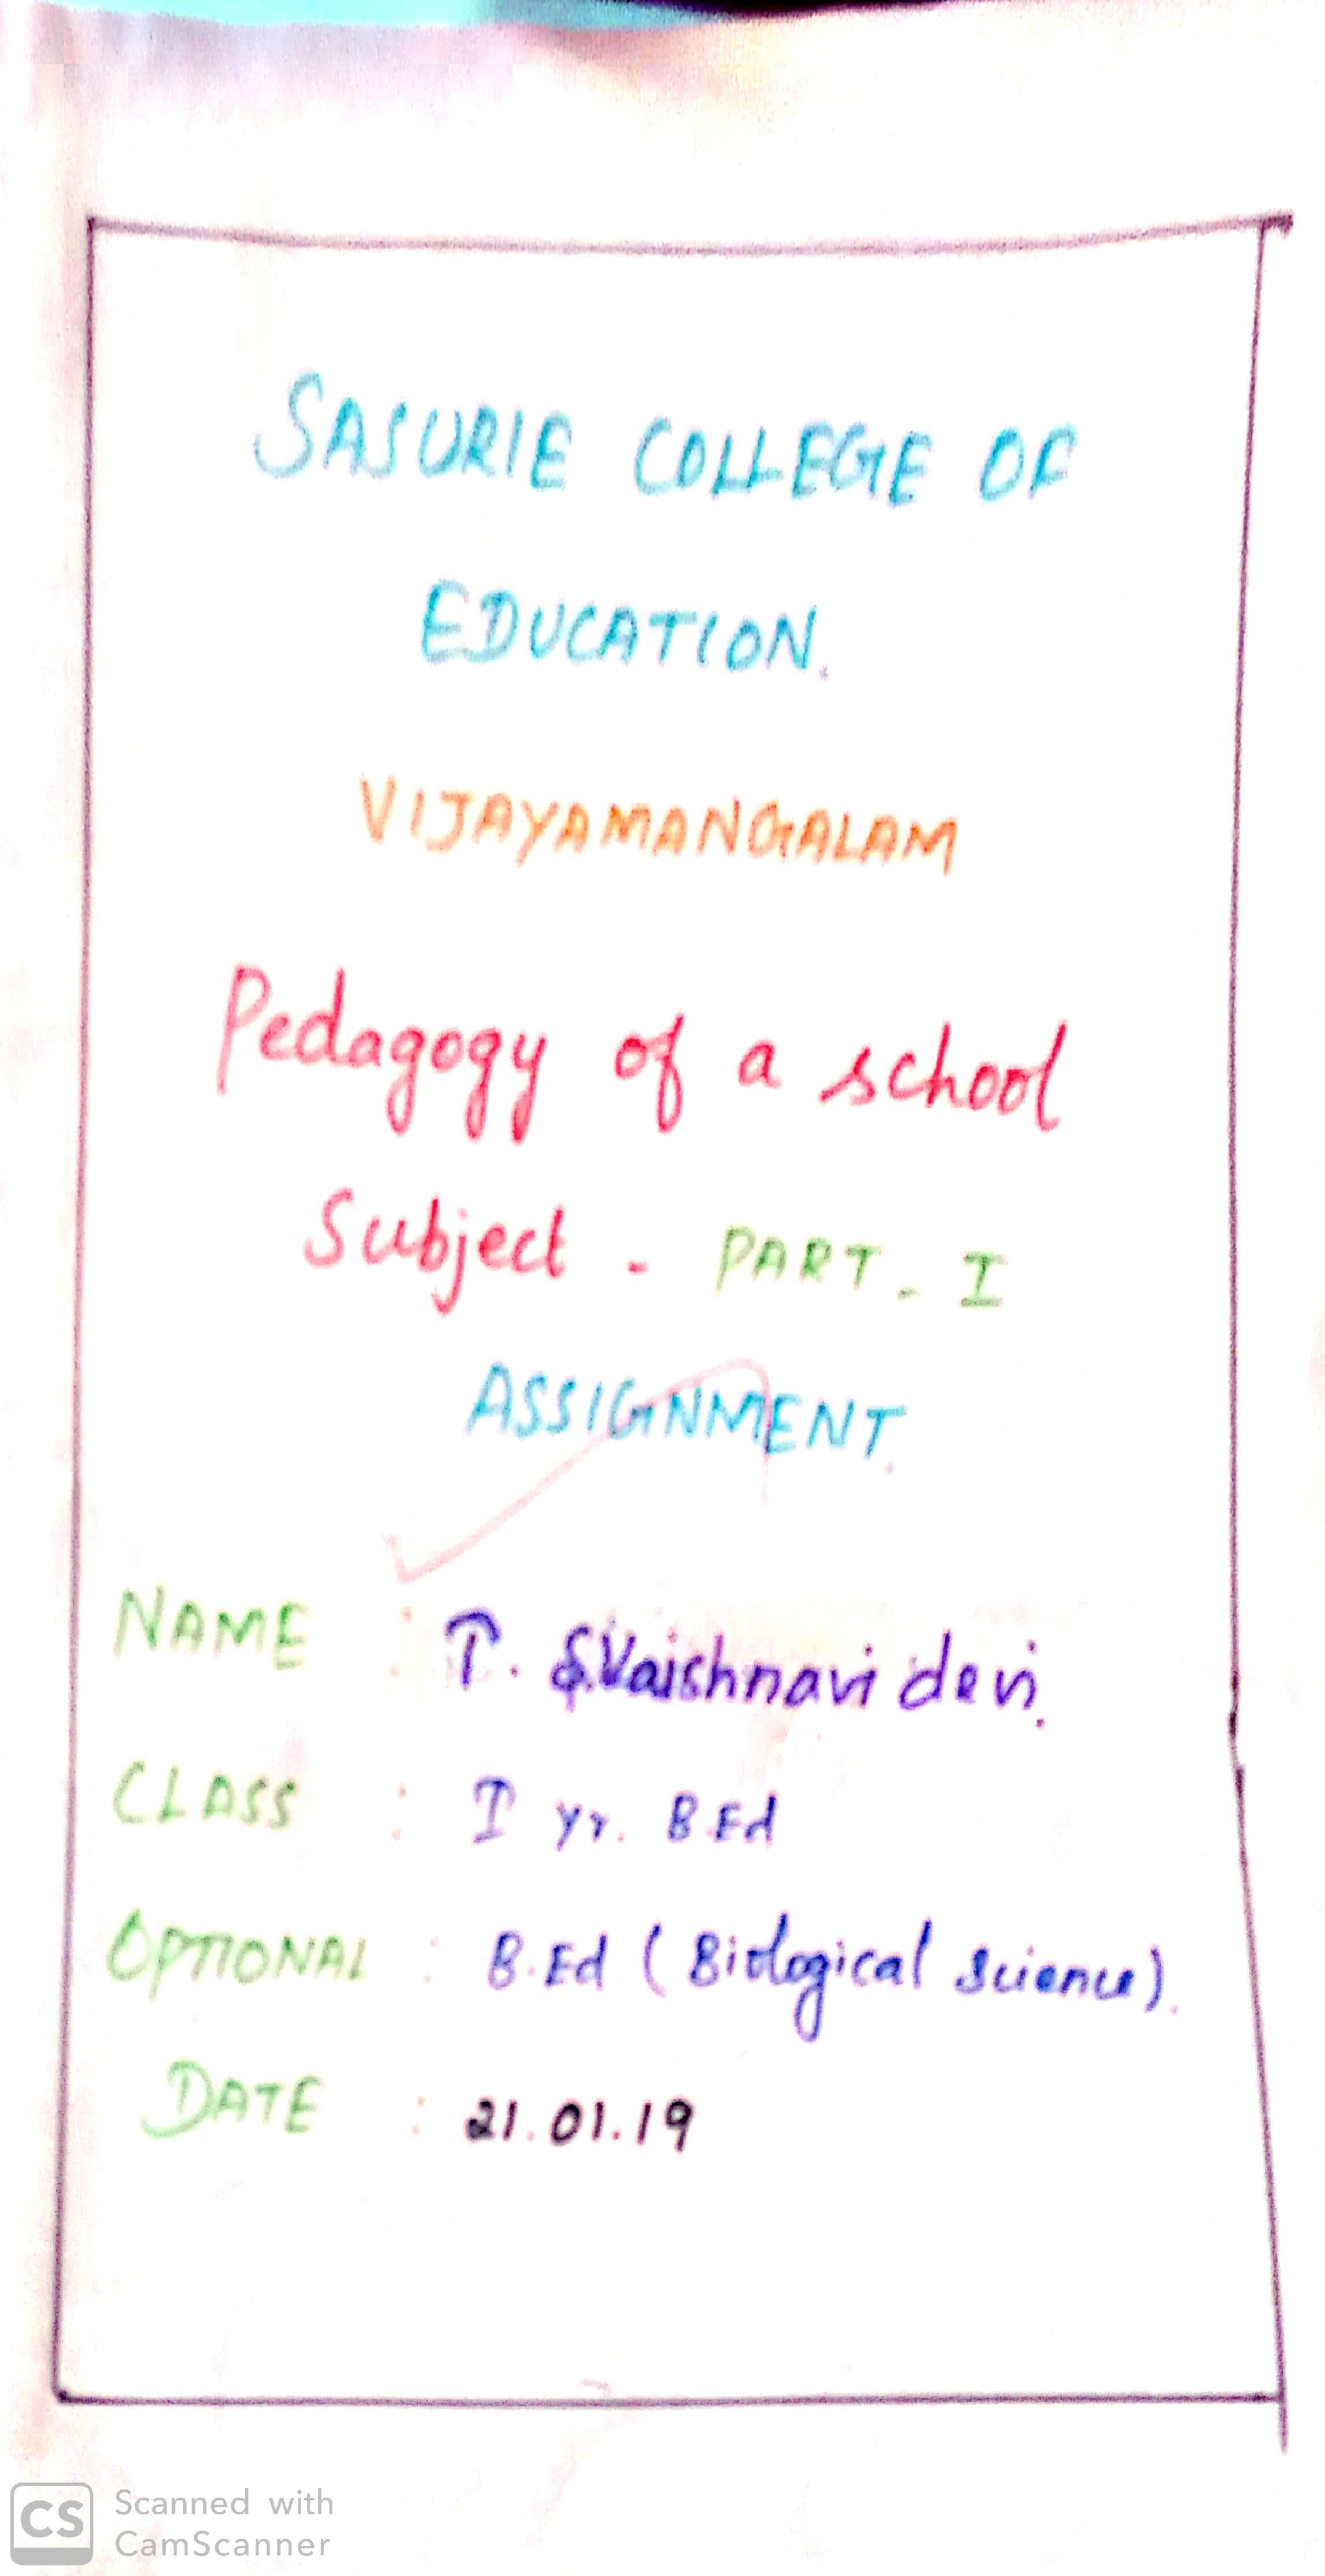 SASURIE COLLEGE OF
EDUCATION.
VIJAYAMANGALAM
Pedagogy of a school
Subject - PART - I
ASSIGNMENT.
NAME : T. Vaishnavi devi.
CLASS : I yr. B.Ed
OPTIONAL : B.Ed (Biological science).
DATE : 21.01.19
CS Scanned with
CamScanner